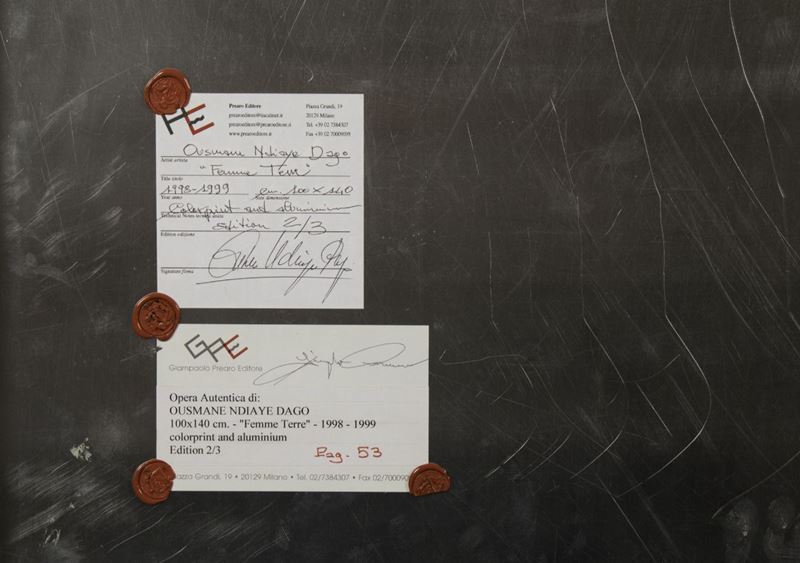 Prearo Editore
prearoeditore@tiscalinet.it
prearoeditore@prearoeditore.it
www.prearoeditore.it
Piazza Grandi, 19
20129 Milano
Tel. +39 02 7384307
Fax +39 02 70009095
Ousmane Ndiaye Dago
Artist artista
"Femme Terre"
Title titolo
1998-1999 cm. 100 x 140
Year anno Size dimensione
Colorprint and aluminium
Technical Notes tecnica usata
Edition 2/3
Edition edizione
Signature firma
GPE
Giampaolo Prearo Editore
Opera Autentica di:
OUSMANE NDIAYE DAGO
100x140 cm. - "Femme Terre" - 1998 - 1999
colorprint and aluminium
Edition 2/3
Pag. 53
Piazza Grandi, 19 • 20129 Milano • Tel. 02/7384307 • Fax 02/700090